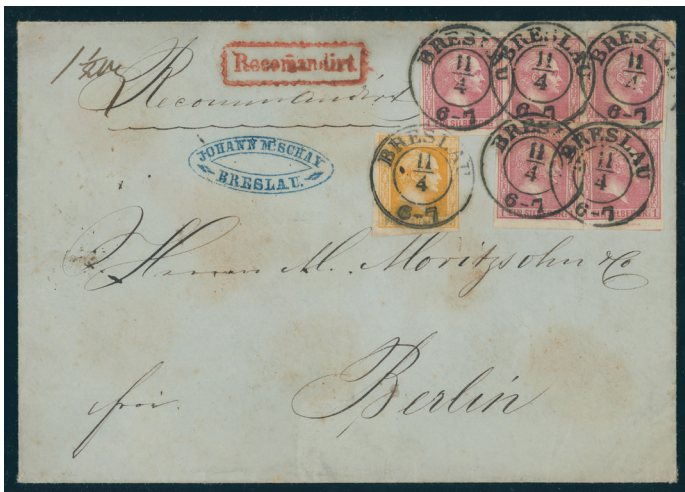 Recomandirt.
Recommandirt
JOHANN M. SCHAY
BRESLAU.
BRESLAU
11/4
6-7
BRESLAU
11/4
6-7
BRESLAU
11/4
6-7
BRESLAU
11/4
6-7
BRESLAU
11/4
6-7
BRESLAU
11/4
6-7
Herren M. Moritzsohn & Co
frei.
Berlin